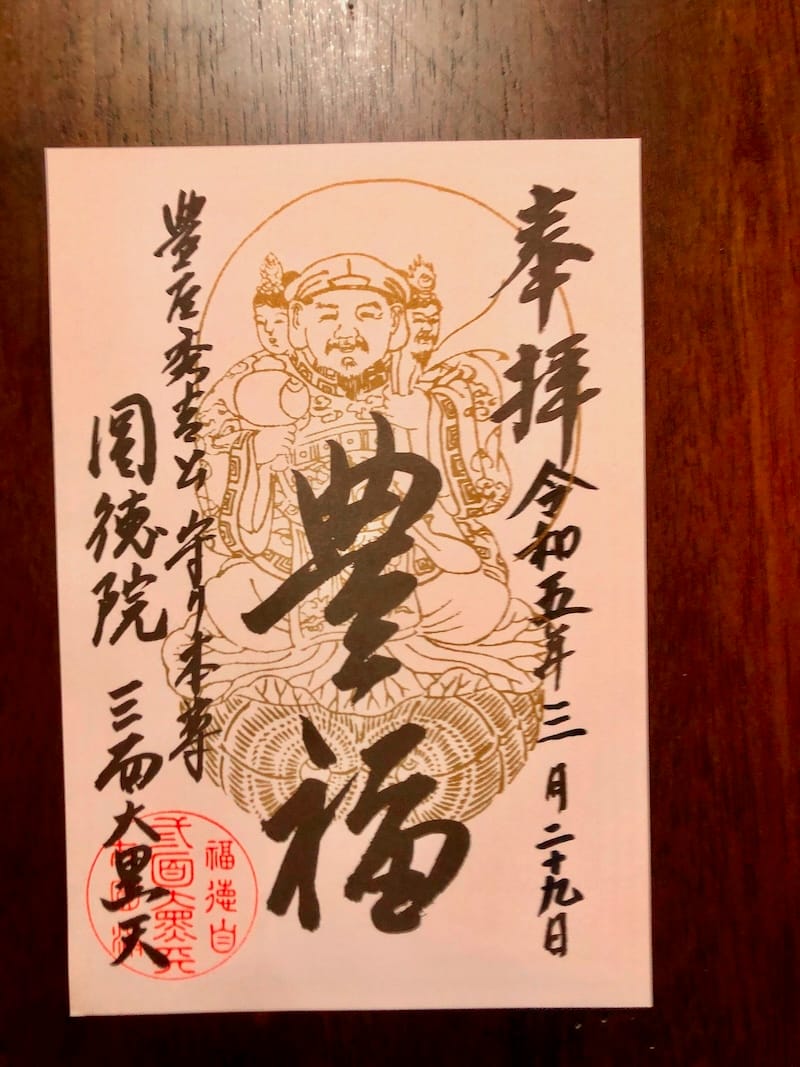 奉拝
令和五年三月二十九日
豊福
豊臣秀吉公守り本尊
圓徳院 三面大黒天
福徳自
三面大黒天